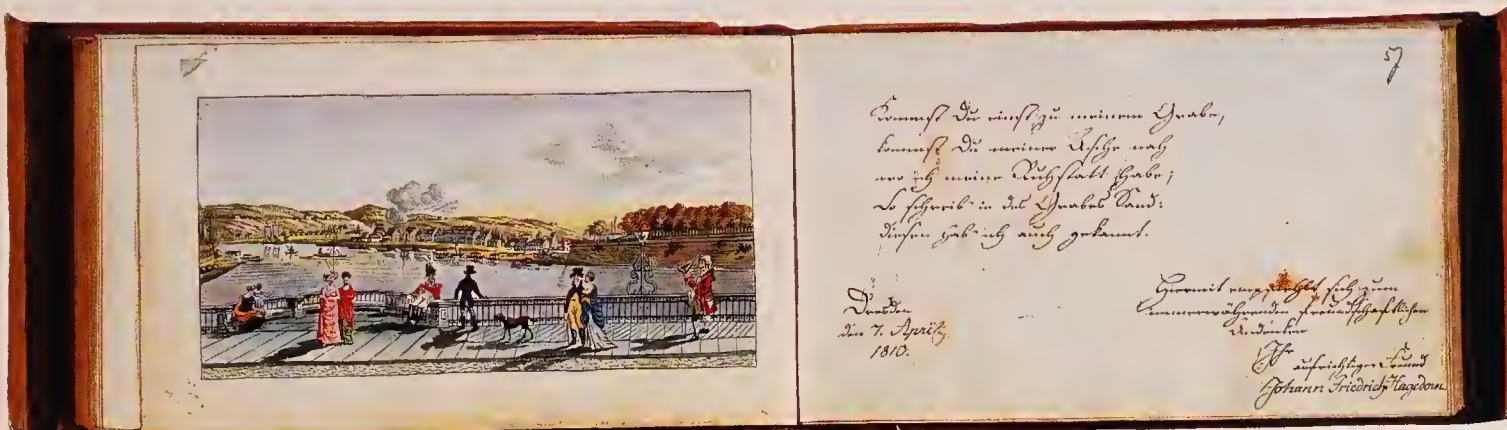 57
Kommst Du einst zu meinem Grabe,
kommst Du meiner Asche nah
wo ich meine Ruhstatt habe;
So schreib' in des Grabes Sand:
diesen hab' ich auch gekannt.
Dresden
den 7. April
1810.
Hiermit empfiehlt sich zum
immerwährenden freundschaftlichen
Andenken
Ihr
aufrichtiger Freund
Johann Friedrich Hagedorn